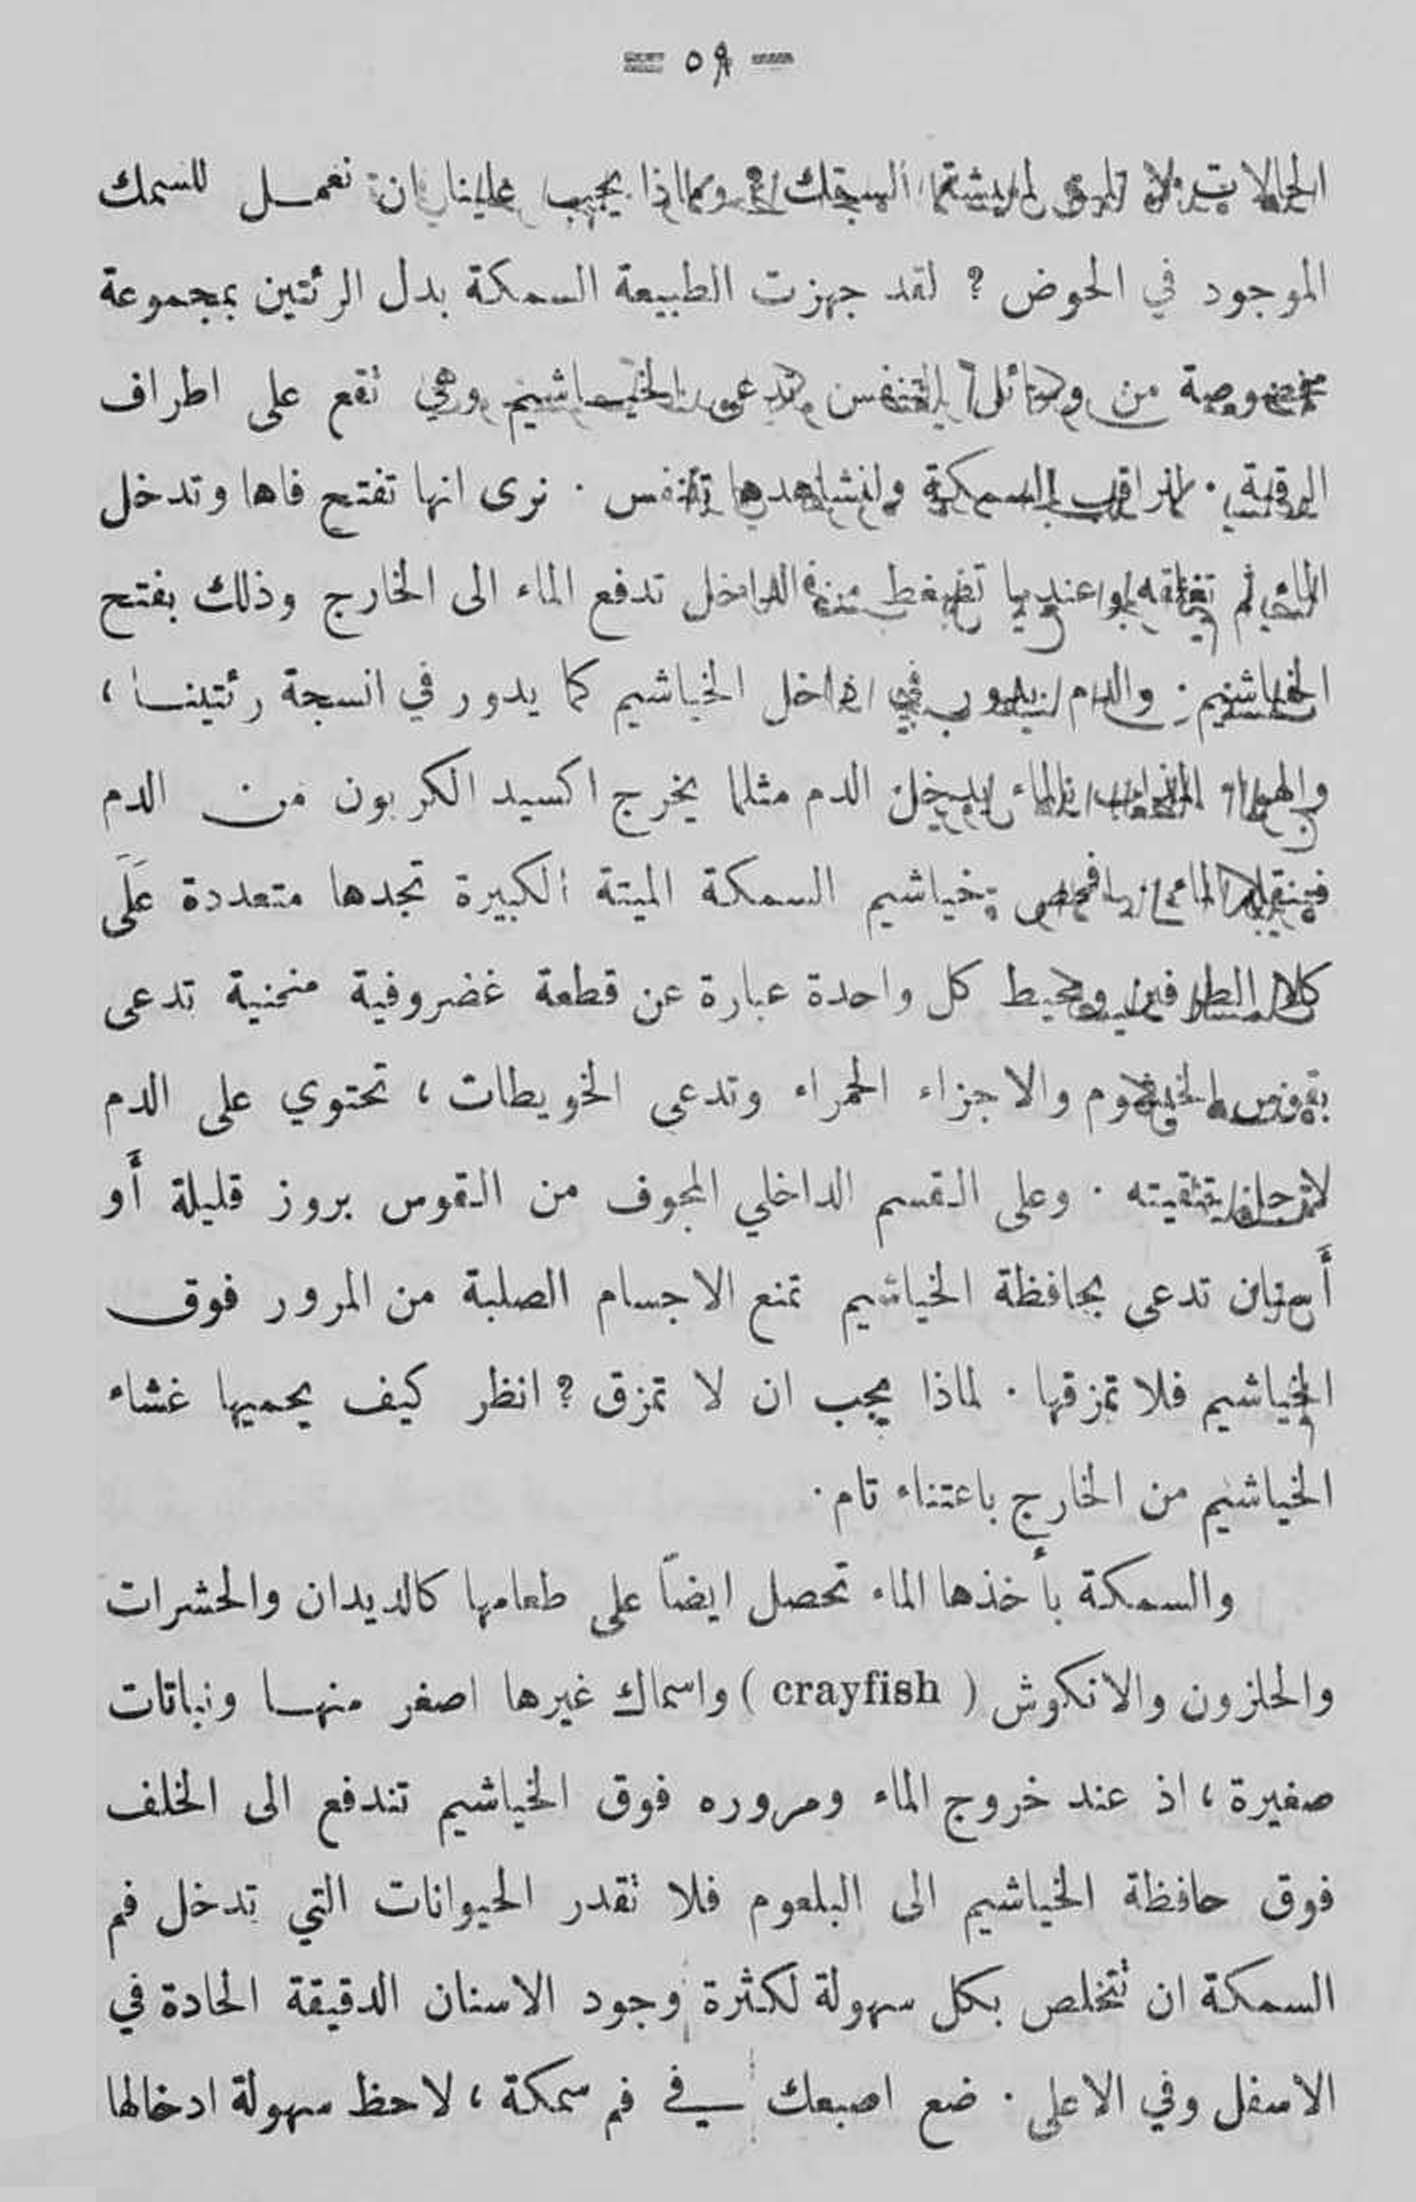 — ٥٩ —
الحالات لا ان نعمل للسمك
الموجود في الحوض ? لقد جهزت الطبيعة السمكة بدل الرئتين بمجموعة
مخصوصة من وسائل التنفس تدعى الخياشيم وهي تقع على اطراف
الرقبة . لنراقب السمكة ولنشاهدها تتنفس . نرى انها تفتح فاها وتدخل
الماء ثم تغلقه وعندما تضغط الداخل تدفع الماء الى الخارج وذلك بفتح
الخياشيم . والدم يدور في داخل الخياشيم كما يدور في انسجة رئتينا ،
والهواء المذاب بالماء يدخل الدم مثلما يخرج اكسيد الكربون من الدم
الماء خياشيم السمكة الميتة الكبيرة تجدها متعددة عَلَى
كلا الطرفين ومحيط كل واحدة عبارة عن قطعة غضروفية منحنية تدعى
بقوس الخيشوم والاجزاء الحمراء وتدعى الخويطات ، تحتوي على الدم
لاجل تنقيته . وعلى القسم الداخلي المجوف من القوس بروز قليلة أَو
أَسنان تدعى بحافظة الخياشيم تمنع الاجسام الصلبة من المرور فوق
الخياشيم فلا تمزقها . لماذا يجب ان لا تمزق ? انظر كيف يحميها غشاء
الخياشيم من الخارج باعتناء تام .
والسمكة بأخذها الماء تحصل ايضاً على طعامها كالديدان والحشرات
والحلزون والانكوش ( crayfish ) واسماك غيرها اصغر منها ونباتات
صغيرة ، اذ عند خروج الماء ومروره فوق الخياشيم تندفع الى الخلف
فوق حافظة الخياشيم الى البلعوم فلا تقدر الحيوانات التي تدخل فم
السمكة ان تتخلص بكل سهولة لكثرة وجود الاسنان الدقيقة الحادة في
الاسفل وفي الاعلى . ضع اصبعك في فم سمكة ، لاحظ سهولة ادخالها